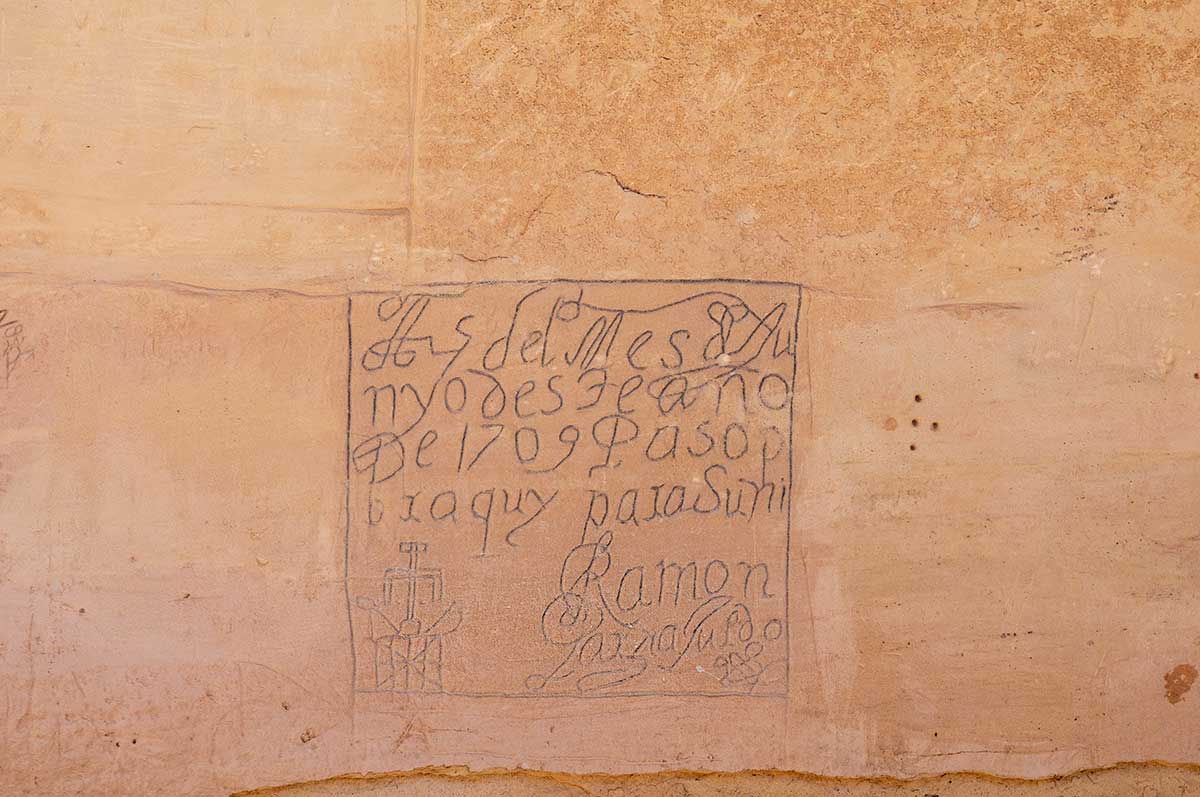 A 5 del Mes de Ju
nyo deste año
De 1709 Paso p
or aquy para Suñi
Ramon
Garzia Jurdo